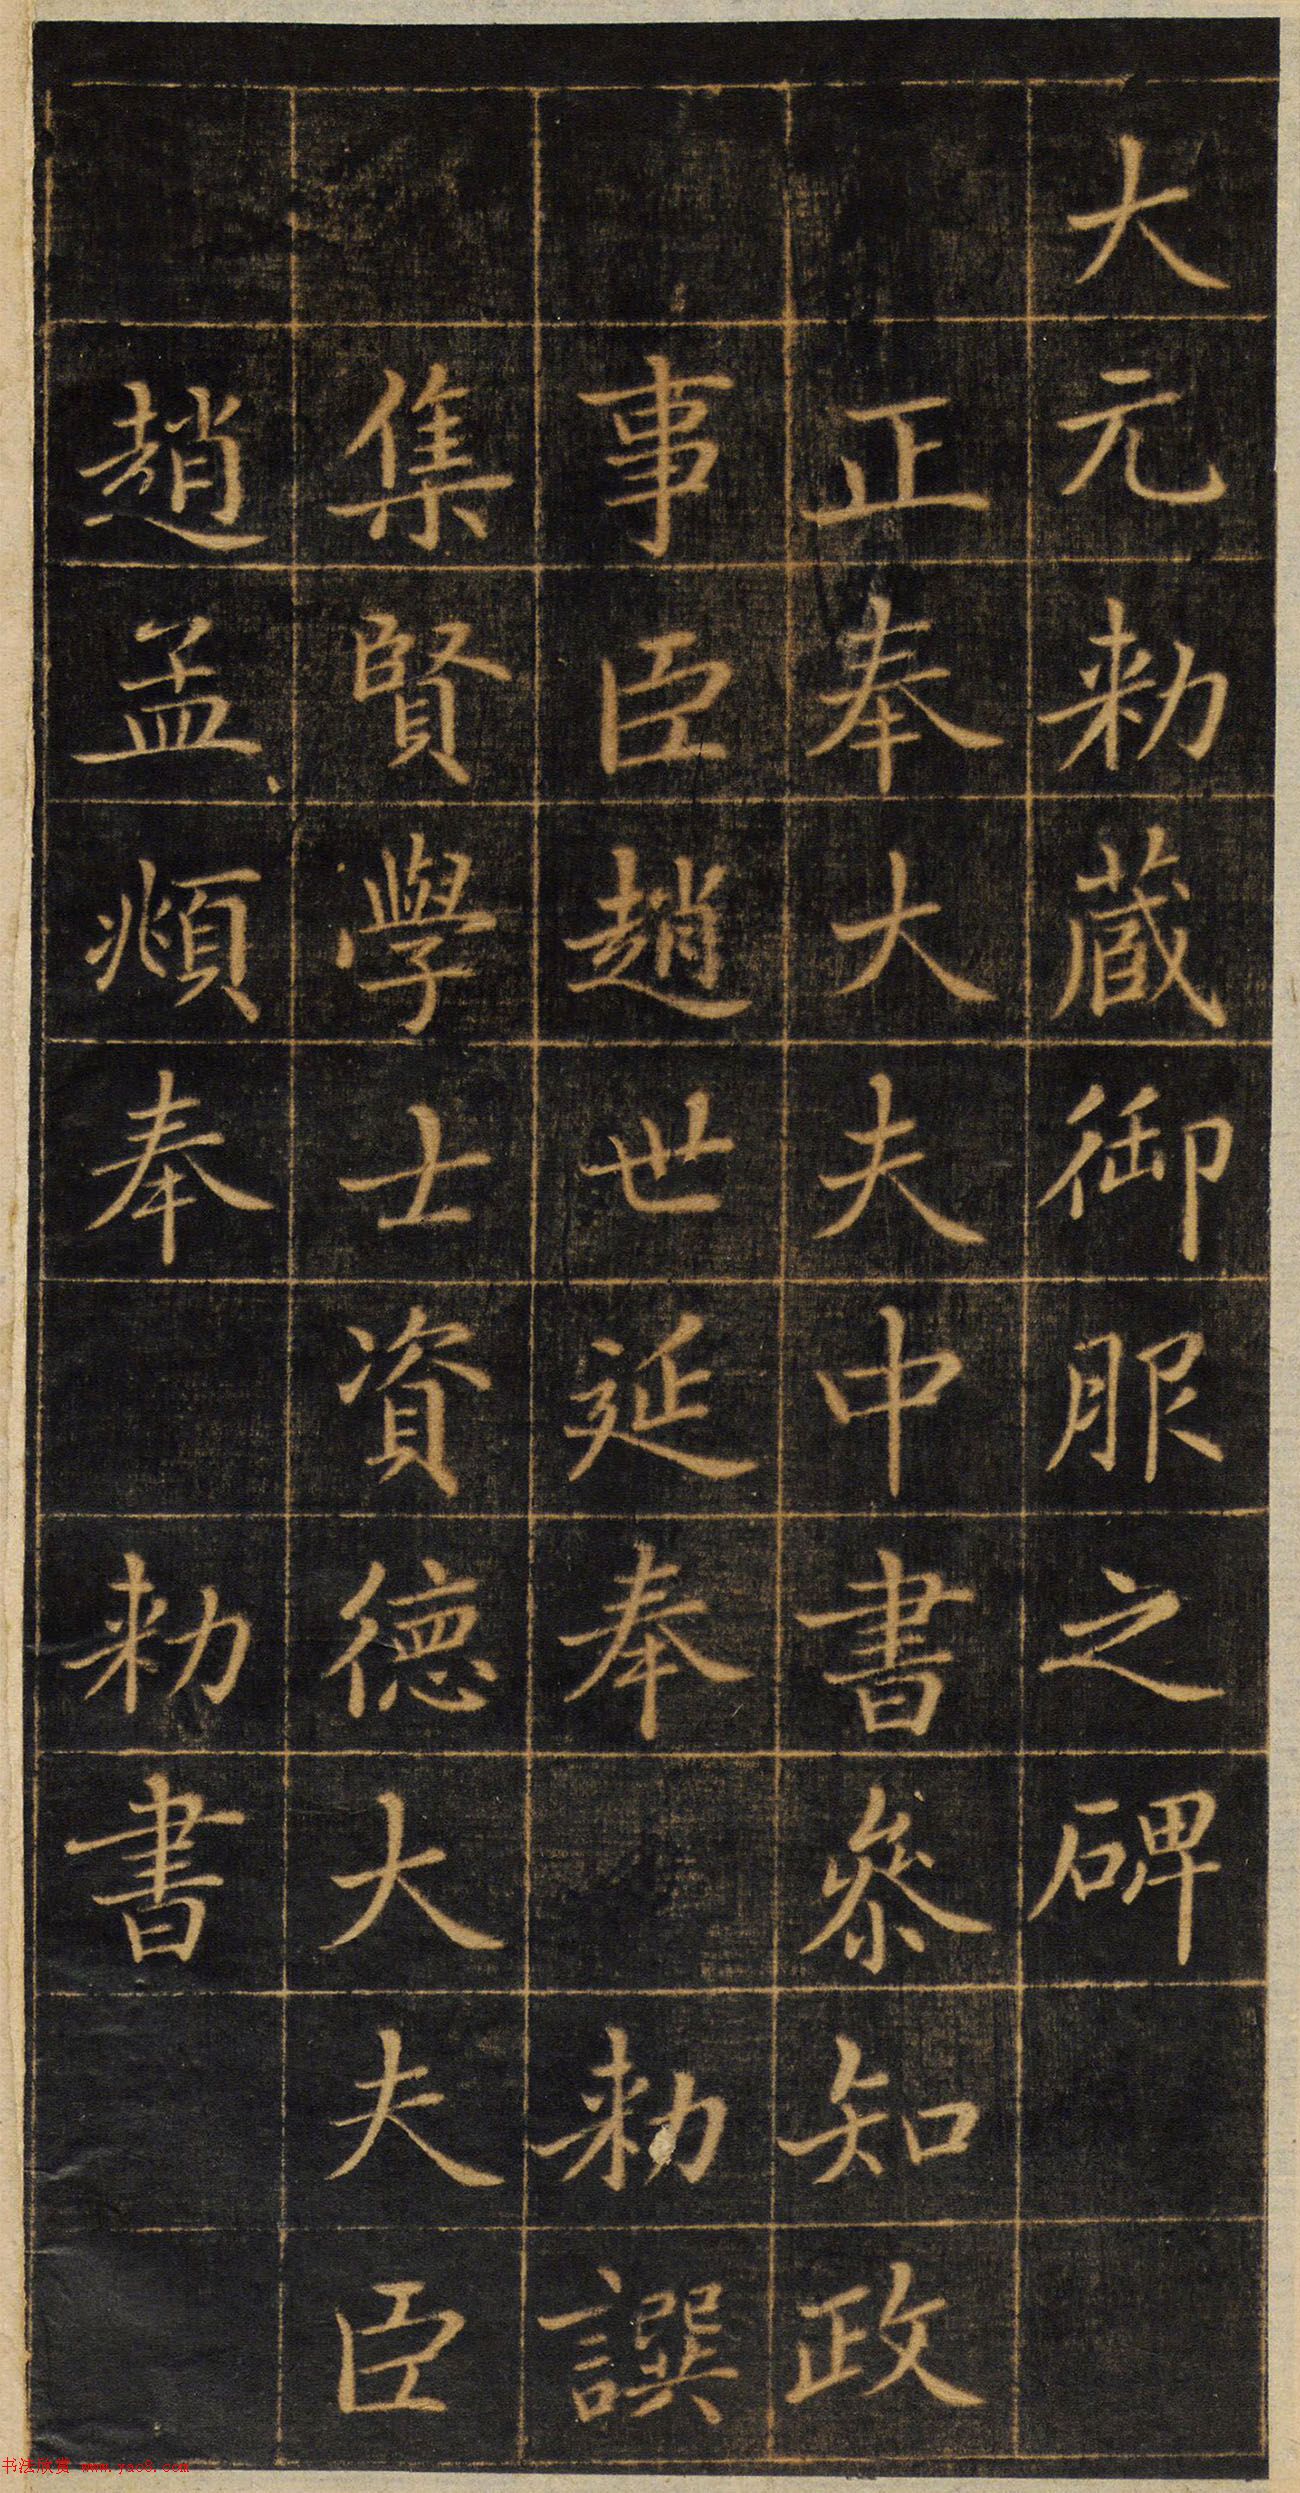 大元勅蔵御服之碑
正奉大夫中書叅知政
事臣趙世延奉勅譔
集賢學士資德大夫臣
趙孟頫奉勅書
书法欣赏 www.yac8.com